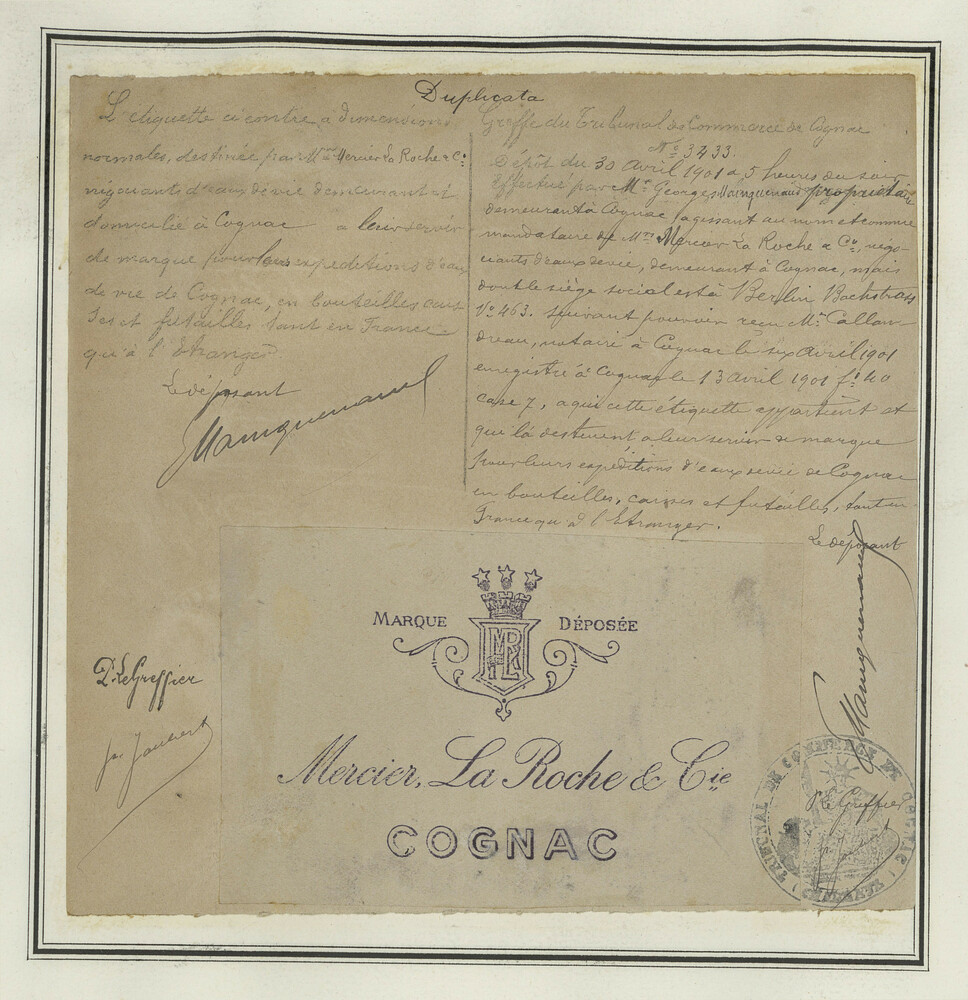 Duplicata
L'étiquette ci contre à dimensions
normales, destinée par Mrs Mercier La Roche & Cie
négociants d'eaux de vie demeurant et
domicilié à Cognac à leur servir
de marque pour leurs expéditions d'eau
de vie de Cognac, en bouteilles cais
ses et futailles tant en France
qu'à l'Etranger
Le déposant
Mainguenaud
Greffe du Tribunal de Commerce de Cognac
No 3433.
Dépôt du 30 Avril 1901 à 5 heures du soir
Effectué par Mr Georges Mainguenaud propriétaire
demeurant à Cognac, agissant au nom et comme
mandataire de Mrs Mercier La Roche & Cie, négo
ciants d'eaux de vie, demeurant à Cognac, mais
dont le siège social est à Berlin
No 463. suivant pouvoir reçu Mr Callan
dreau, notaire à Cognac le six Avril 1901
enregistré à Cognac le 13 avril 1901 fo 40
case 7, à qui cette étiquette appartient et
qui la destinent à leur servir de marque
pour leurs expéditions d'eaux de vie de Cognac
en bouteilles, caisses et futailles, tant en
France qu'à l'Etranger.
Le déposant
Mainguenaud
MARQUE DÉPOSÉE
Mercier, La Roche & Cie
COGNAC
Le Greffier
TRIBUNAL DE COMMERCE DE COGNAC
(CHARENTE)
Le Greffier